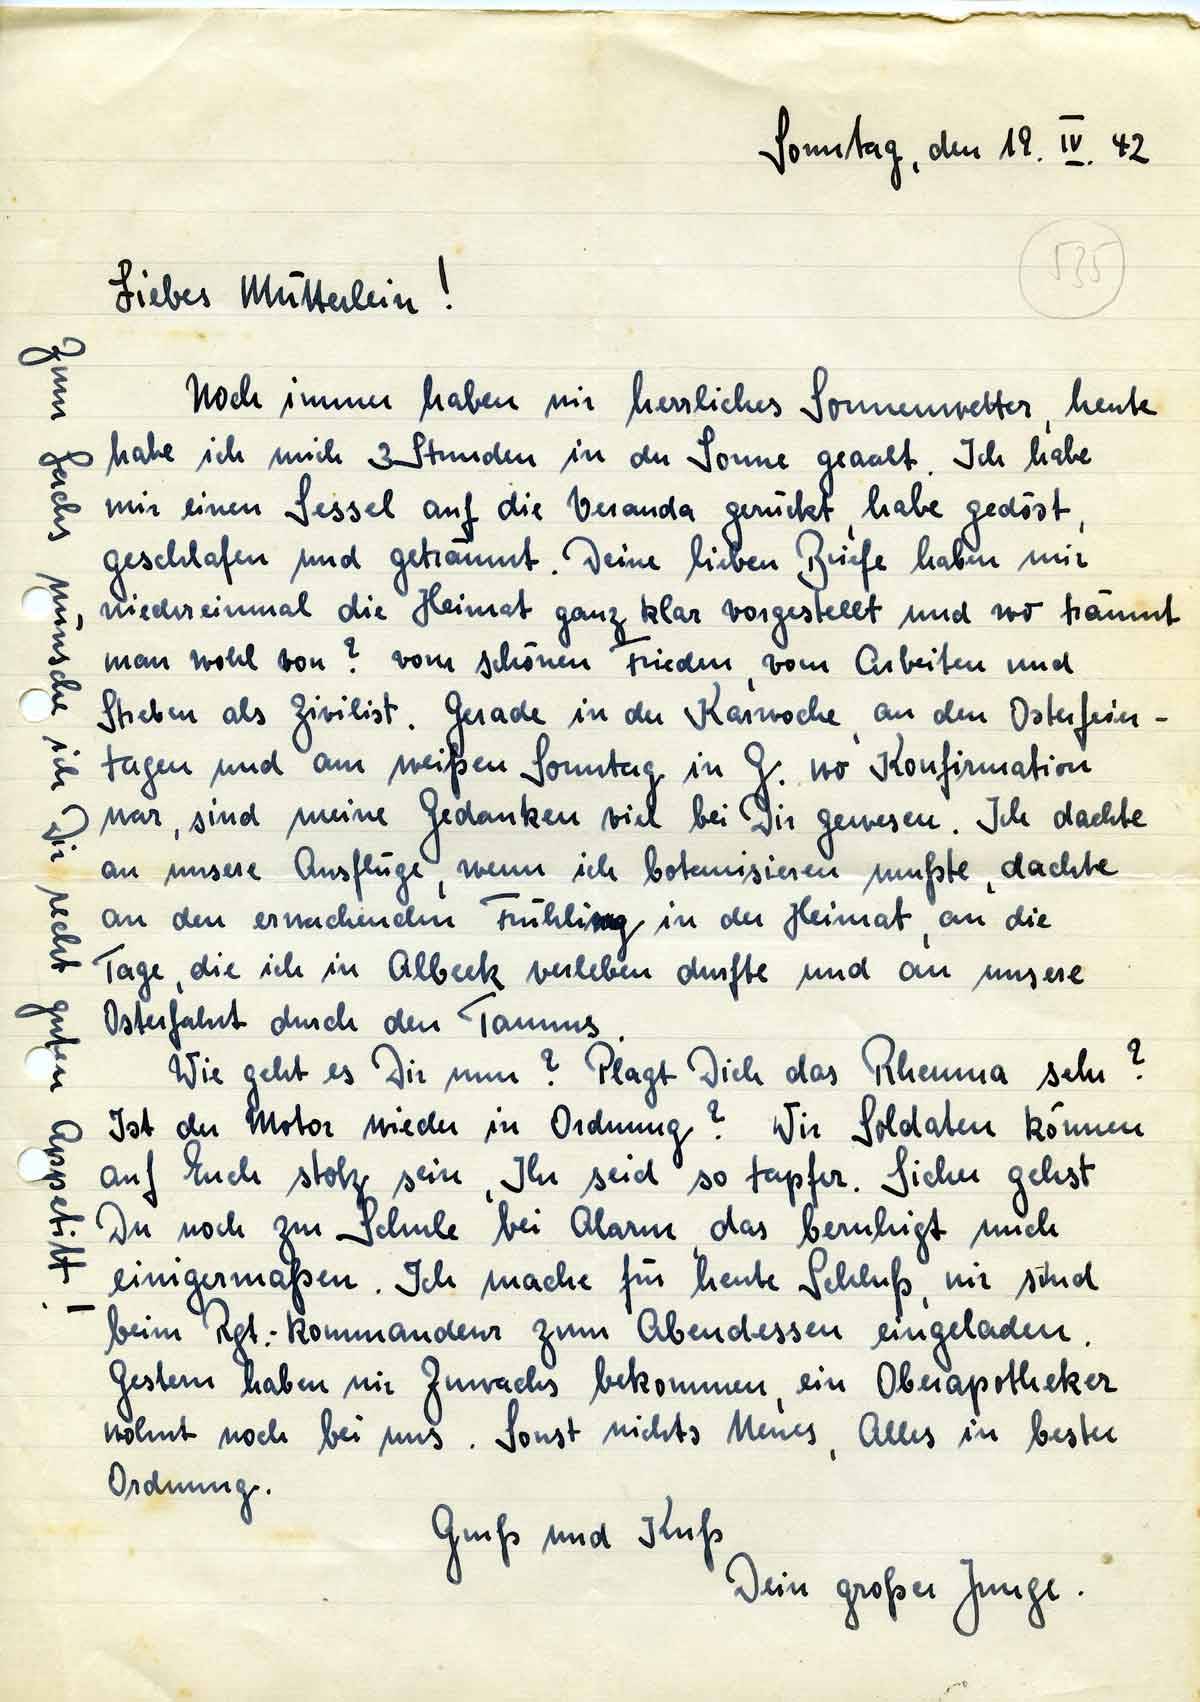 Sonntag, den 19. IV. 42
535
Liebes Mütterlein!
Noch immer haben wir herrliches Sonnenwetter, heute
habe ich mich 3 Stunden in der Sonne geaalt. Ich habe
mir einen Sessel auf die Veranda gerückt, habe gedöst,
geschlafen und geträumt. Deine lieben Briefe haben mir
wiedereinmal die Heimat ganz klar vorgestellt und wo träumt
man wohl von? vom schönen Frieden, vom Arbeiten und
Streben als Zivilist. Gerade in der Karwoche, an den Osterfeier-
tagen und am weißen Sonntag in G. wo Konfirmation
war, sind meine Gedanken viel bei Dir gewesen. Ich dachte
an unsere Ausflüge, wenn ich botanisieren mußte, dachte
an den erwachenden Frühling in der Heimat, an die
Tage, die ich in Albeck verleben durfte und an unsere
Osterfahrt durch den Taunus.
Wie geht es Dir nun? Plagt Dich das Rheuma sehr?
Ist der Motor wieder in Ordnung? Wir Soldaten können
auf Euch stolz sein, Ihr seid so tapfer. Sicher gehst
Du noch zur Schule bei Alarm, das beruhigt mich
einigermaßen. Ich mache für heute Schluß, wir sind
beim Rgt.-kommandeur zum Abendessen eingeladen.
Gestern haben wir Zuwachs bekommen, ein Oberapotheker
wohnt noch bei uns. Sonst nichts Neues, Alles in bester
Ordnung.
Gruß und Kuß
Dein großer Junge.
Zum Lachs wünsche ich Dir recht guten Appetitt!